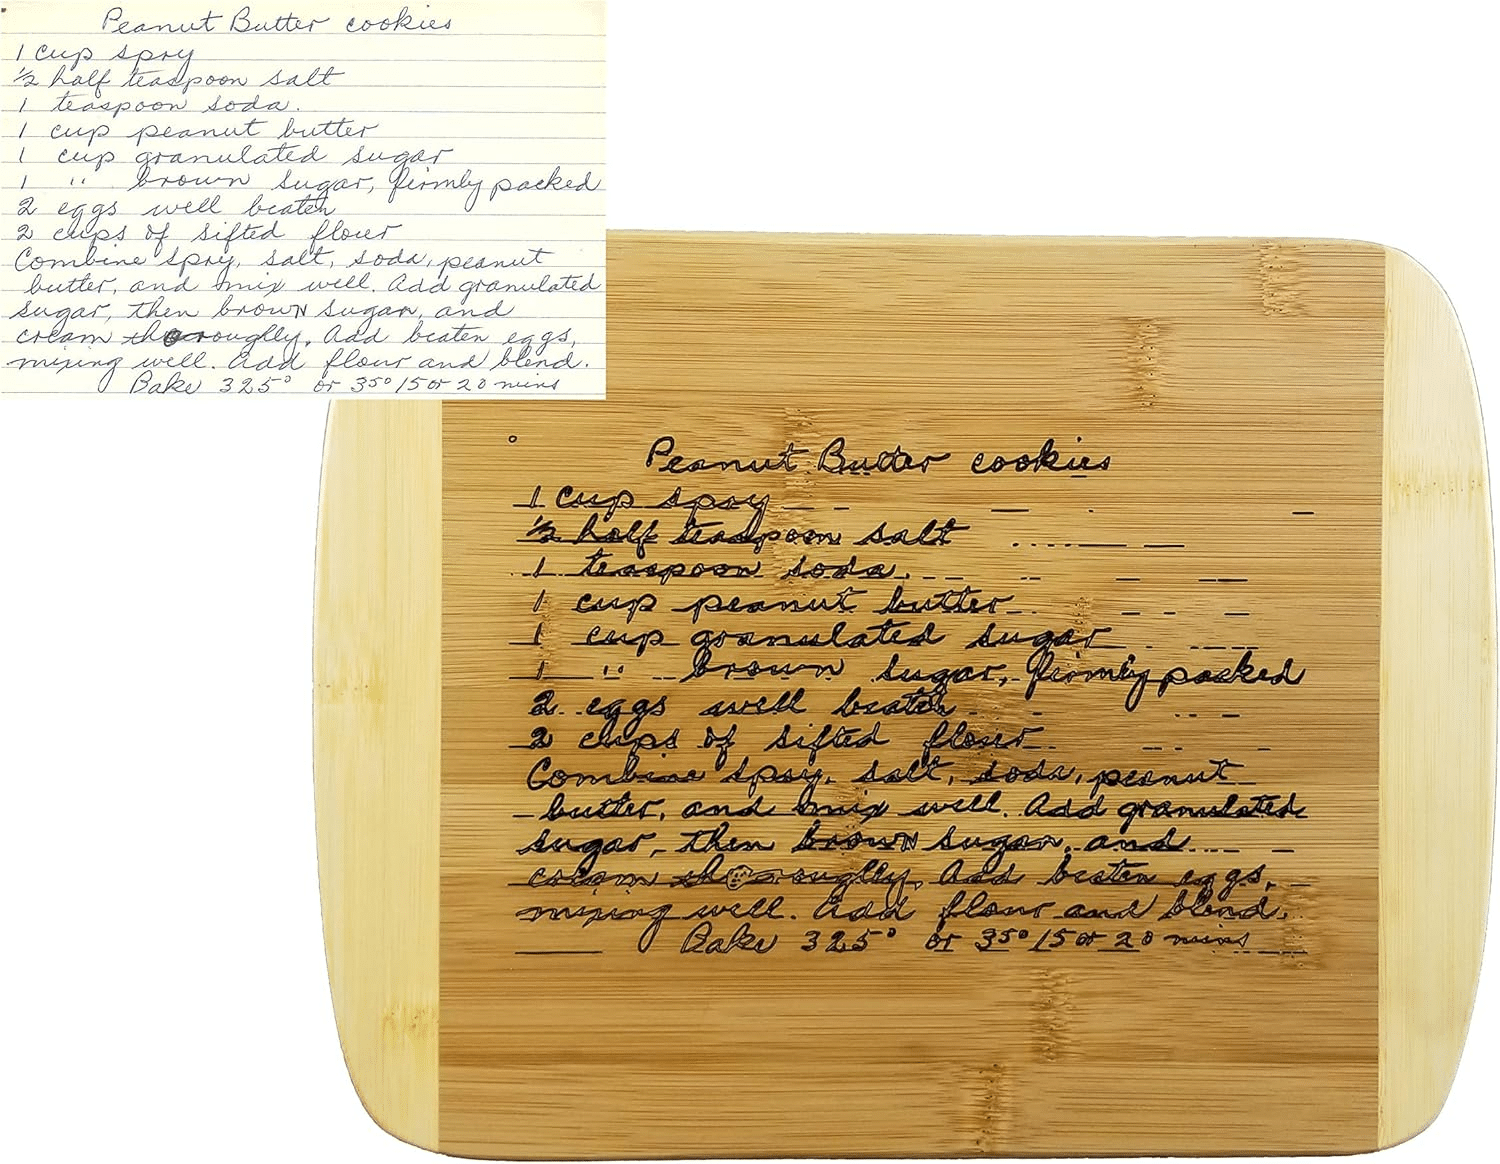 Peanut Butter cookies
1 cup spry
½ half teaspoon salt
1 teaspoon soda.
1 cup peanut butter
1 cup granulated sugar
1 " brown sugar, firmly packed
2 eggs well beaten
2 cups of sifted flour
Combine spry, salt, soda, peanut
butter, and mix well. Add granulated
sugar, then brown sugar, and
cream thoroughly. Add beaten eggs,
mixing well. Add flour and blend.
Bake 325° or 35° 15 or 20 mins
Peanut Butter cookies
1 cup spry
½ half teaspoon salt
1 teaspoon soda.
1 cup peanut butter
1 cup granulated sugar
1 " brown sugar, firmly packed
2 eggs well beaten
2 cups of sifted flour
Combine spry, salt, soda, peanut
butter, and mix well. Add granulated
sugar, then brown sugar, and
cream thoroughly. Add beaten eggs,
mixing well. Add flour and blend.
Bake 325° or 35° 15 or 20 mins